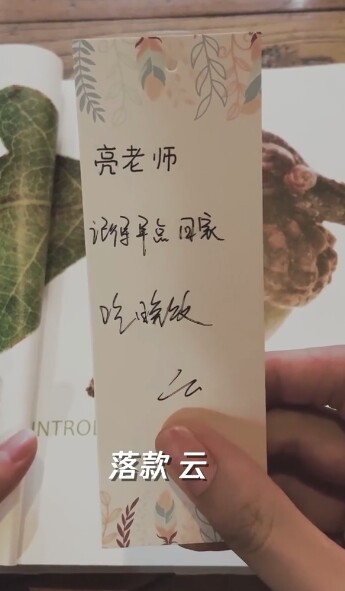 亮老师
记得早点回家
吃晚饭
云
INTRO
落款 云